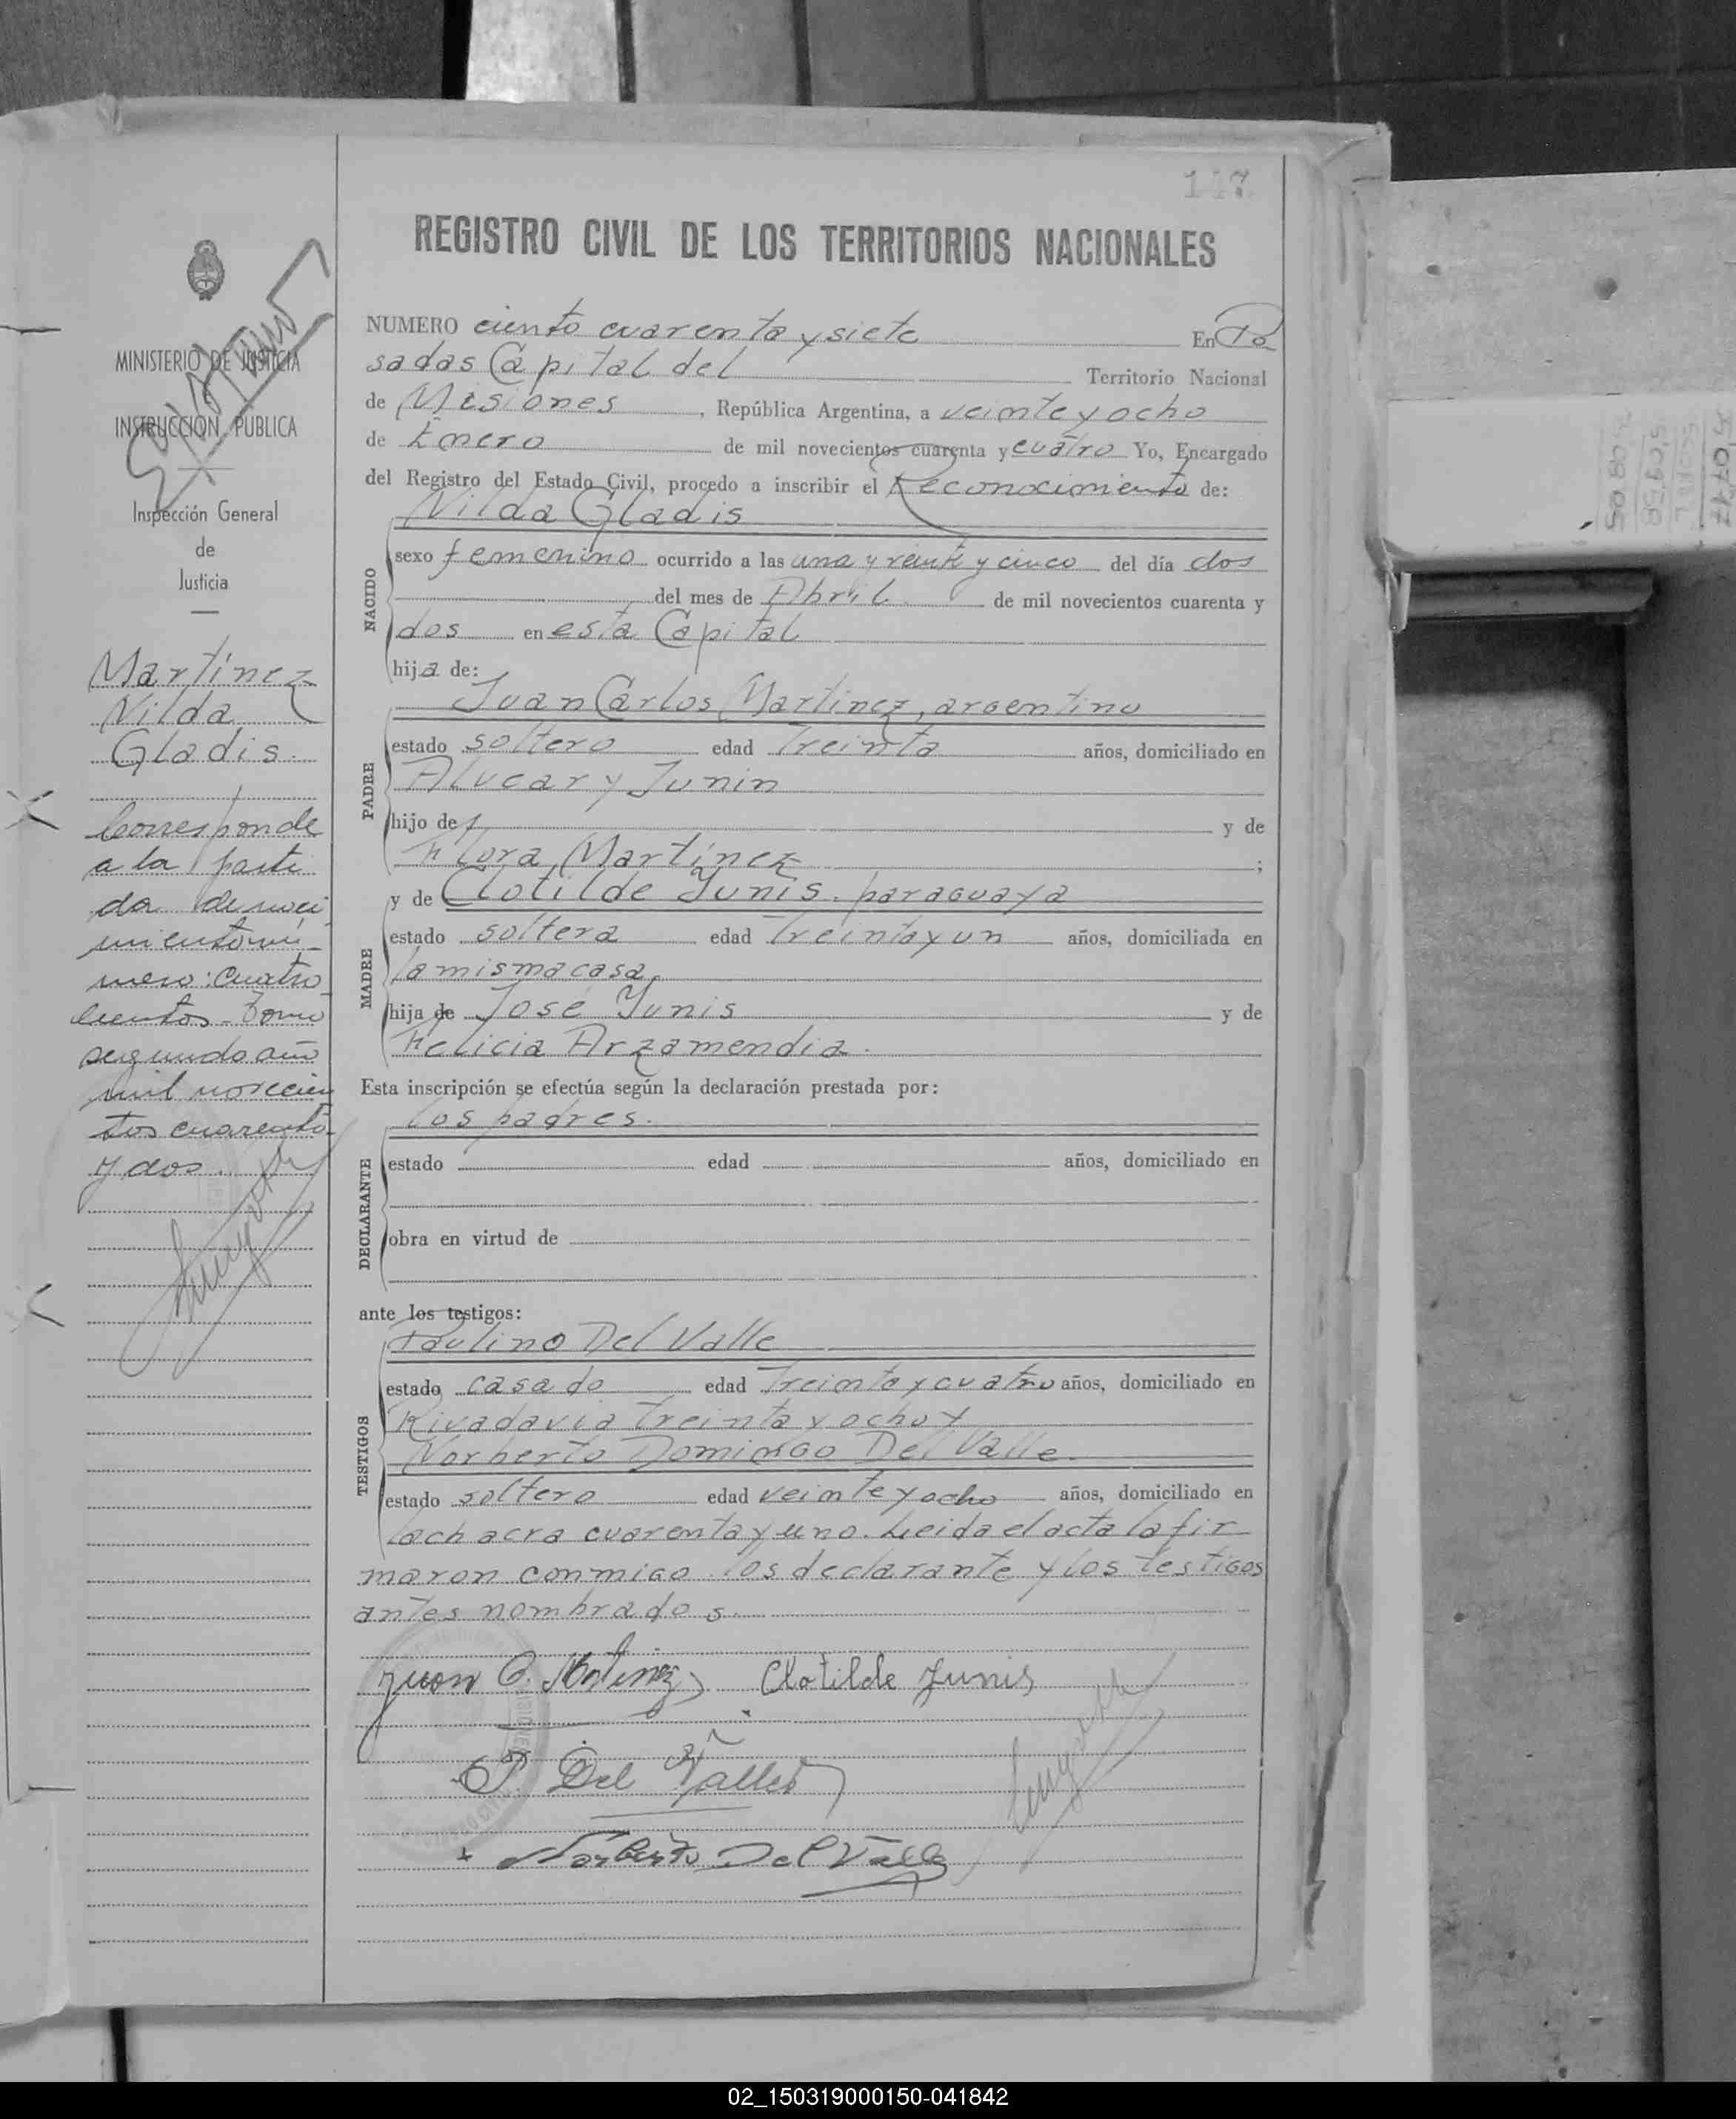 147
REGISTRO CIVIL DE LOS TERRITORIOS NACIONALES
NUMERO ciento cuarenta y siete En Po
sadas Capital del Territorio Nacional
de Misiones, República Argentina, a veinte y ocho
de Enero de mil novecientos cuarenta y cuatro Yo, Encargado
del Registro del Estado Civil, procedo a inscribir el Reconocimiento de:
Nilda Gladis
NACIDO
sexo femenino ocurrido a las una y veinte y cinco del día dos
del mes de Abril de mil novecientos cuarenta y
dos en esta Capital
hija de:
Juan Carlos Martinez, argentino
PADRE
estado soltero edad Treinta años, domiciliado en
Alvear y Junin
hijo de y de
Flora Martínez ;
y de Clotilde Yunis. paraguaya
MADRE
estado soltera edad Treinta y un años, domiciliada en
la misma casa.
hija de José Yunis y de
Felicia Arzamendia.
Esta inscripción se efectúa según la declaración prestada por:
los padres.
DECLARANTE
estado edad años, domiciliado en
obra en virtud de
ante los testigos:
Paulino Del Valle
TESTIGOS
estado casado edad Treinta y cuatro años, domiciliado en
Rivadavia treinta y ocho y
Norberto Domingo Del Valle.
estado soltero edad veinte y ocho años, domiciliado en
lachacra cuarenta y uno. Leida el acta la fir
maron conmigo los declarante y los testigos
antes nombrados.
Juan C. Martinez Clotilde Junis
P. Del Valle
Norberto Del Valle
MINISTERIO DE JUSTICIA
E
INSTRUCCION PUBLICA
Inspección General
de
Justicia
Martínez
Nilda
Gladis.
Corresponde
a la parti
da de naci
miento nú-
mero: cuatro
cientos - Tomo
segundo año
mil novecien
tos cuarenta
y dos.
02_150319000150-041842